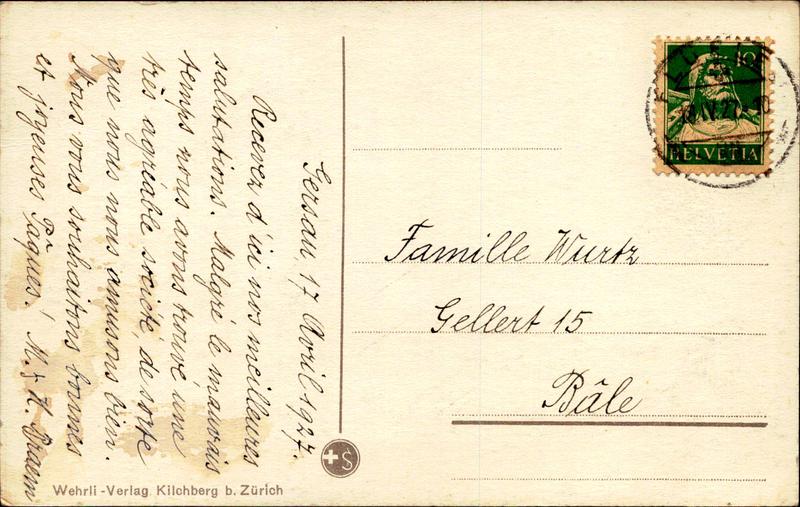 Gersau 17 Avril 1927.
Recevez d'ici nos meilleures
salutations. Malgré le mauvais
temps nous avons trouvé une
très agréable société, de sorte
que nous nous amusons bien.
Nous vous souhaitons bonnes
et joyeuses Pâques! M. & H. Braem
Famille Wurtz
Gellert 15
Bâle
10
HELVETIA
Wehrli-Verlag, Kilchberg b. Zürich
S